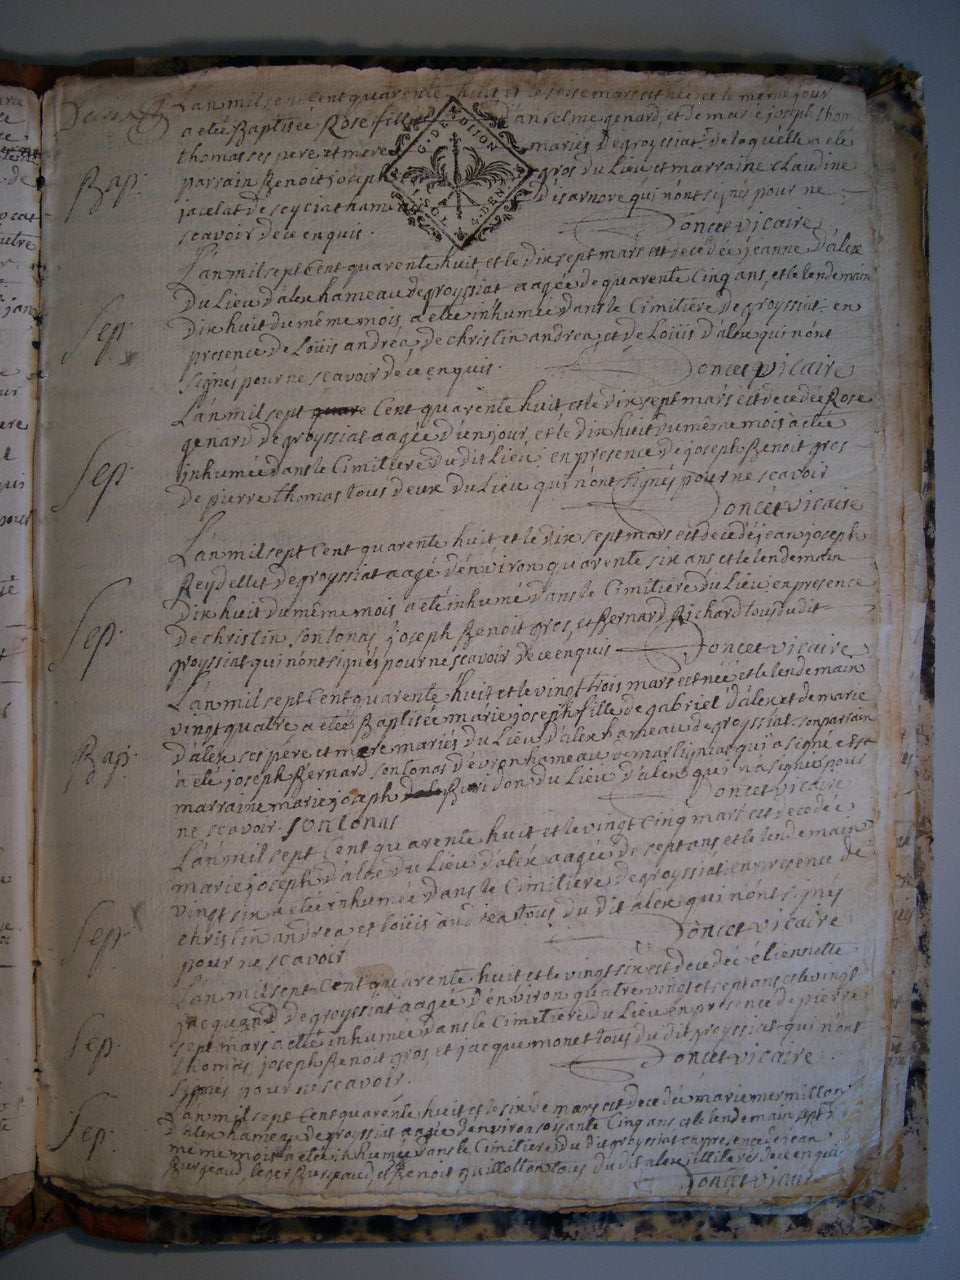 Lan mil sept Cent quarente huit et le seise mars est née et le même jour
a eté Baptisée Rose fille d'anselme genard, et de marie joseph thomas
thomas ses pere et mere mariés De groyssiat de laquelle a eté
Bap. parrain Benoit joseph gros du Lieu et marraine claudine
jacelat de scyciat hameau Disarnore qui n'ont signés pour ne
scavoir de ce enquis. Doncet vicaire
G. DE DIJON
1. SOL. 4. DEN.
Lan mil sept Cent quarente huit et le dix sept mars est decedée jeanne d'alex
Du Lieu d'alex hameau de groyssiat aagée de quarente Cinq ans, et le lendemain
Sep. Dix huit du même mois, a eté inhumée dans le Cimitière De groyssiat en
presence de Loüis andrea, de christin andrea, et de Loüis d'alex qui n'ont
signés pour ne scavoir de ce enquis. Doncet vicaire
Lan mil sept quare Cent quarente huit et le dix sept mars est decedée Rose
genard De groyssiat aagée d'un jour, et le dix huit du même mois à eté
Sep. inhumée dans le Cimitiere du dit Lieu en presence de joseph Benoit gros
De pierre thomas tous deux du Lieu qui n'ont signés pour ne scavoir
Doncet vicaire
Lan mil sept Cent quarente huit et le dix sept mars est decedé jean joseph
Reydellet De groyssiat aagé d'environ quarente six ans et le lendemain
Sep. Dix huit du même mois a eté inhumé dans le Cimitiere du Lieu en presence
de christin sonlonas joseph Benoit gros, et Bernard Richard tous du dit
groyssiat qui n'ont signés pour ne scavoir de ce enquis Doncet vicaire
Lan mil sept Cent quarente huit et le vingt trois mars est née et le lendemain
vingt quatre a eté Baptisée marie joseph fille de gabriel d'alex et de marie
Bap. d'alex ses pere et mere mariés du Lieu d'alex hameau de groyssiat son parrain
à eté joseph Bernard sonlonas d'evron hameau de martignat qui a signé et sa
marraine marie joseph du Lieu d'alex qui n'a signé pour
ne scavoir. Sonlonas Doncet vicaire
Lan mil sept Cent quarente huit et le vingt Cinq mars est decedée
marie joseph d'alex du Lieu d'alex aagée de sept ans et le lendemain
vingt six a eté inhumée dans le Cimitiere de groyssiat en presence de
Sep. christin andrea et loüis andrea tous du dit alex qui n'ont signés
pour ne scavoir Doncet vicaire
Lan mil sept Cent quarente huit et le vingt six est decedée etiennette
jacquand De groyssiat aagée d'environ quatre vingt et sept ans et le vingt
Sep. sept mars a eté inhumée dans le Cimitiere du Lieu en presence de pierre
thomas joseph Benoit gros et jacque monet tous du dit groyssiat qui n'ont
signés pour ne scavoir. Doncet vicaire
Lan mil sept Cent quarente huit et le six de mars est decedée marie mermillon
Sep. d'alex hameau de groyssiat aagée d'environ soixante Cinq ans et le lendemain sept
même mois a eté inhumée dans le Cimitiere du dit groyssiat en presence de jean
Burgaud, leger Burgaud, et Benoit guillotton tous du dit alex illiterés de ce enquis
Doncet vicaire